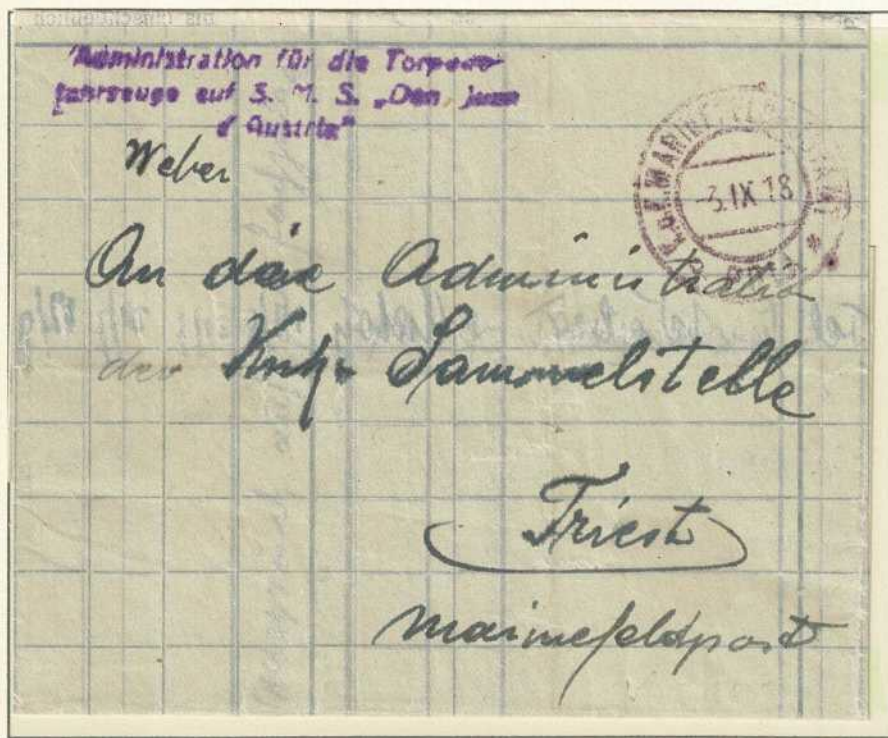 Administration für die Torpedo-
fahrzeuge auf S. M. S. „Don juan
d'Austria"
Weber
K.u.K. MARINEFELDPOSTAMT
-3.IX 18
POLA
An die Administration
der Sammelstelle
Triest
Marinefeldpost